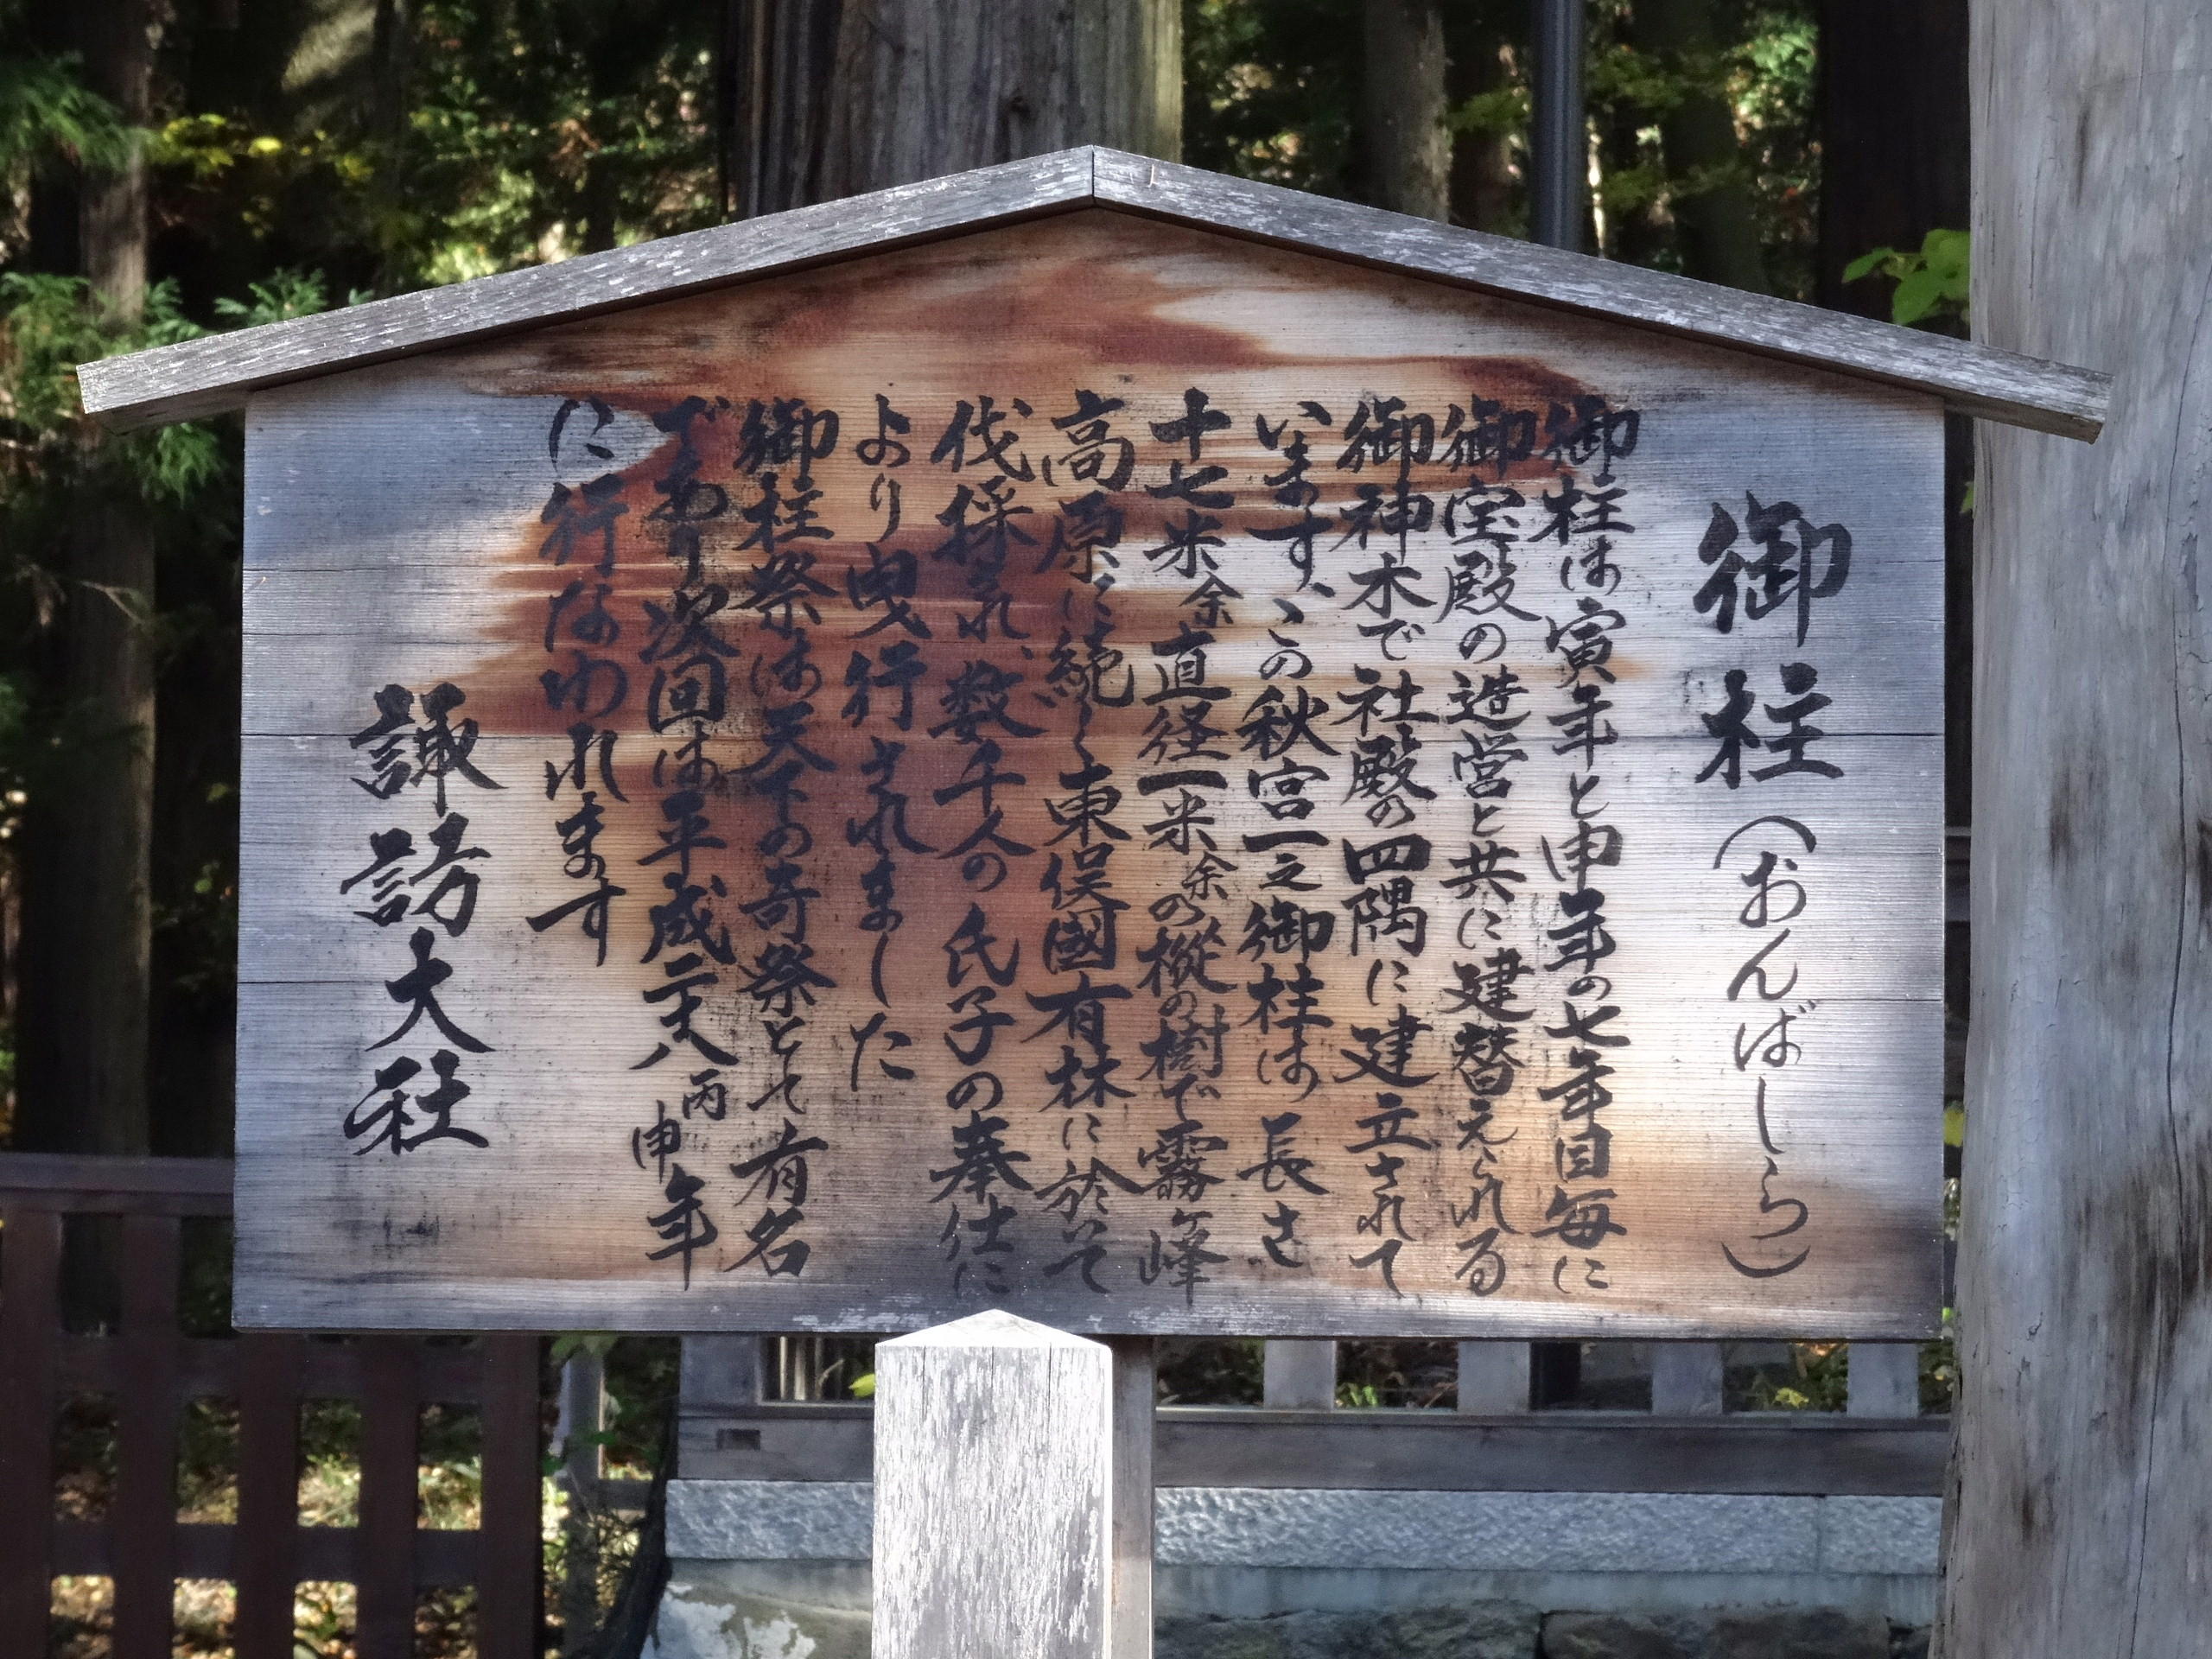 御柱（おんばしら）
御柱は寅年と申年の七年目毎に
御宝殿の造営と共に建替えられる
御神木で社殿の四隅に建立されて
います、この秋宮一之御柱は長さ
十七米余直径一米余の樅の樹で霧ヶ峰
高原に続く東俣國有林に於いて
伐採され、数千人の氏子の奉仕に
より曳行されました
御柱祭は天下の奇祭として有名
であり次回は平成二十八丙申年
に行なわれます
諏訪大社